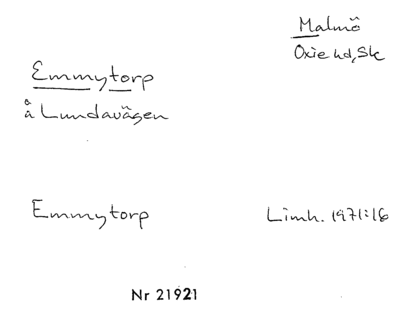 Malmö
Oxie hd, Sk
Emmytorp
å Lundavägen
Emmytorp
Limh. 1971:16
Nr 21921